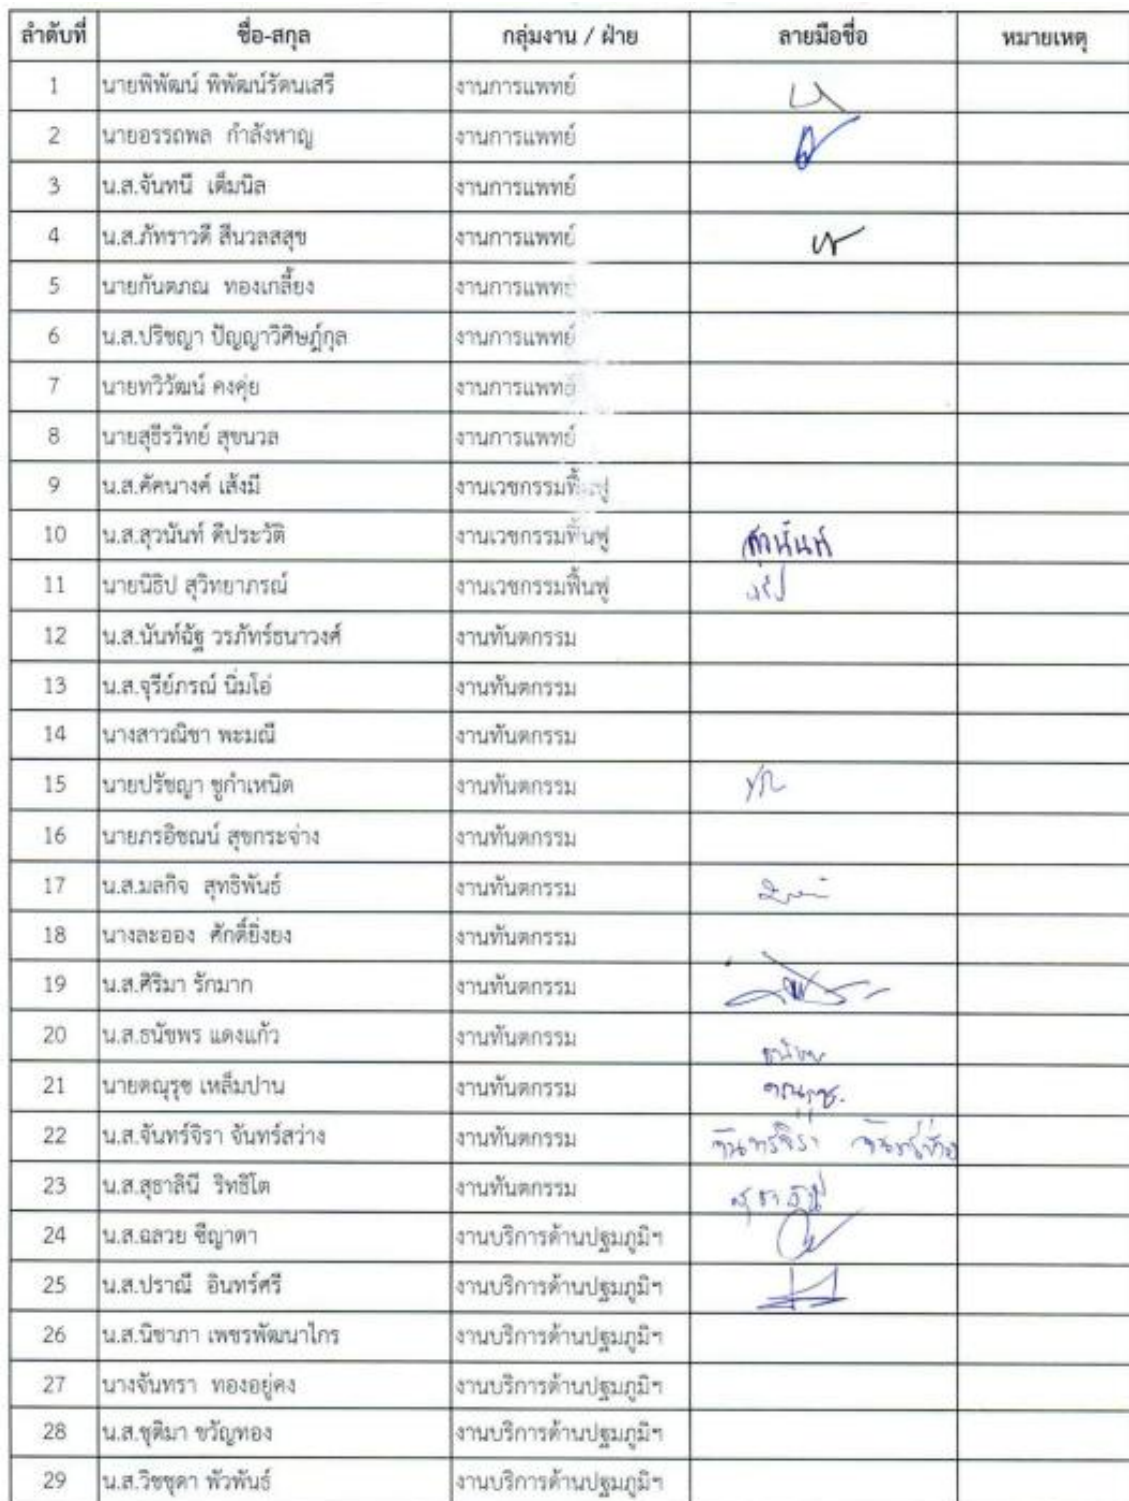 ลำดับที่ ชื่อ-สกุล กลุ่มงาน / ฝ่าย ลายมือชื่อ หมายเหตุ
1 นายพิพัฒน์ พิพัฒน์รัตนเสรี งานการแพทย์
2 นายอรรถพล กำลังหาญ งานการแพทย์
3 น.ส.จันทนี เต็มนิล งานการแพทย์
4 น.ส.ภัทราวดี สีนวลสสุข งานการแพทย์
5 นายกันตภณ ทองเกลี้ยง งานการแพทย์
6 น.ส.ปริชญา ปัญญาวิศิษฎ์กุล งานการแพทย์
7 นายทวิวัฒน์ คงคุ่ย งานการแพทย์
8 นายสุธีรวิทย์ สุขนวล งานการแพทย์
9 น.ส.คัคนางค์ เส้งมี งานเวชกรรมฟื้นฟู
10 น.ส.สุวนันท์ ดีประวัติ งานเวชกรรมฟื้นฟู สุวนันท์
11 นายนิธิป สุวิทยาภรณ์ งานเวชกรรมฟื้นฟู
12 น.ส.นันท์ฉัฐ วรภัทร์ธนาวงศ์ งานทันตกรรม
13 น.ส.จุรีย์ภรณ์ นิ่มโอ่ งานทันตกรรม
14 นางสาวณิชา พะมณี งานทันตกรรม
15 นายปรัชญา ชูกำเหนิด งานทันตกรรม
16 นายภรอิชณน์ สุขกระจ่าง งานทันตกรรม
17 น.ส.มลกิจ สุทธิพันธ์ งานทันตกรรม
18 นางละออง ศักดิ์ยิ่งยง งานทันตกรรม
19 น.ส.ศิริมา รักมาก งานทันตกรรม
20 น.ส.ธนัชพร แดงแก้ว งานทันตกรรม
21 นายดณุรุช เหล็มปาน งานทันตกรรม ดณุรุช.
22 น.ส.จันทร์จิรา จันทร์สว่าง งานทันตกรรม จันทร์จิรา จันทร์สว่าง
23 น.ส.สุธาลินี ริทธิโต งานทันตกรรม สุธาลินี
24 น.ส.ฉลวย ชีญาตา งานบริการด้านปฐมภูมิฯ
25 น.ส.ปราณี อินทร์ศรี งานบริการด้านปฐมภูมิฯ
26 น.ส.นิชาภา เพชรพัฒนาไกร งานบริการด้านปฐมภูมิฯ
27 นางจันทรา ทองอยู่คง งานบริการด้านปฐมภูมิฯ
28 น.ส.ชุติมา ขวัญทอง งานบริการด้านปฐมภูมิฯ
29 น.ส.วิชชุดา พัวพันธ์ งานบริการด้านปฐมภูมิฯ